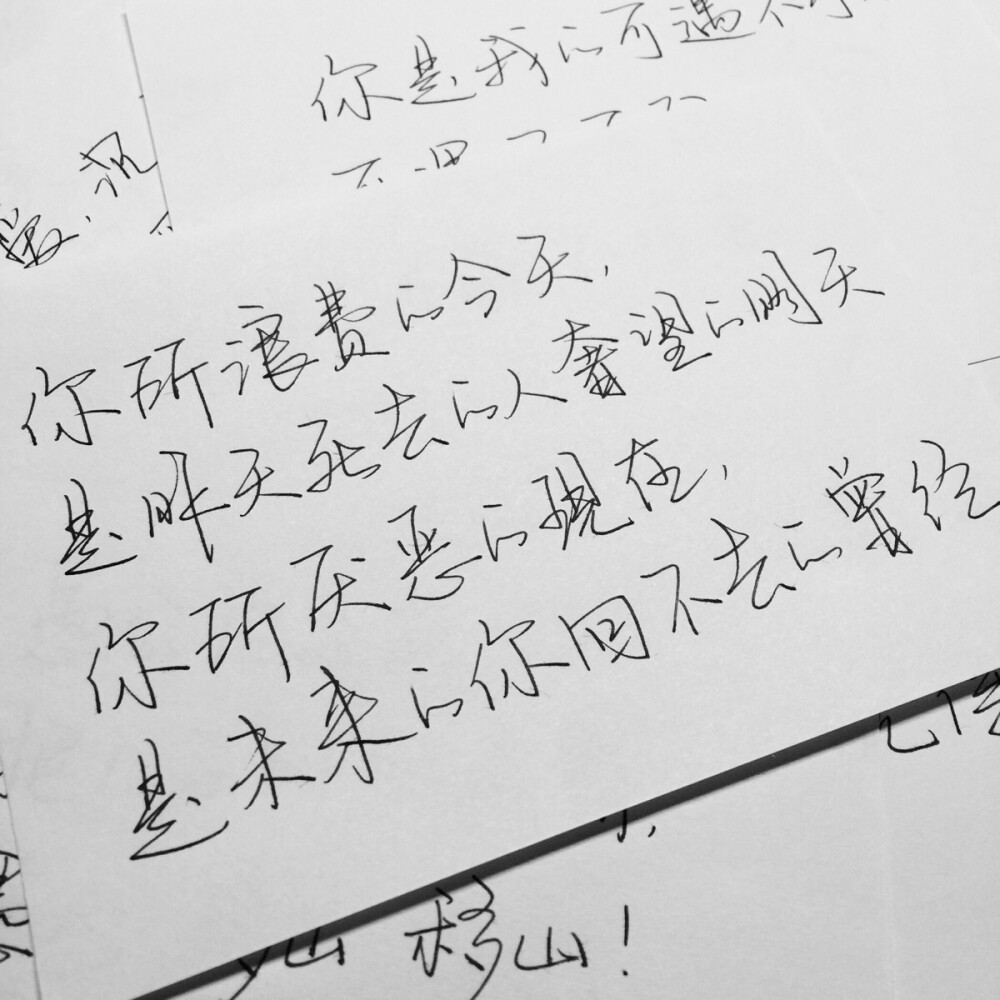 你是我的可遇不
你所浪费的今天,
是昨天死去的人奢望的明天
你所厌恶的现在,
是未来的你回不去的曾经
移山!